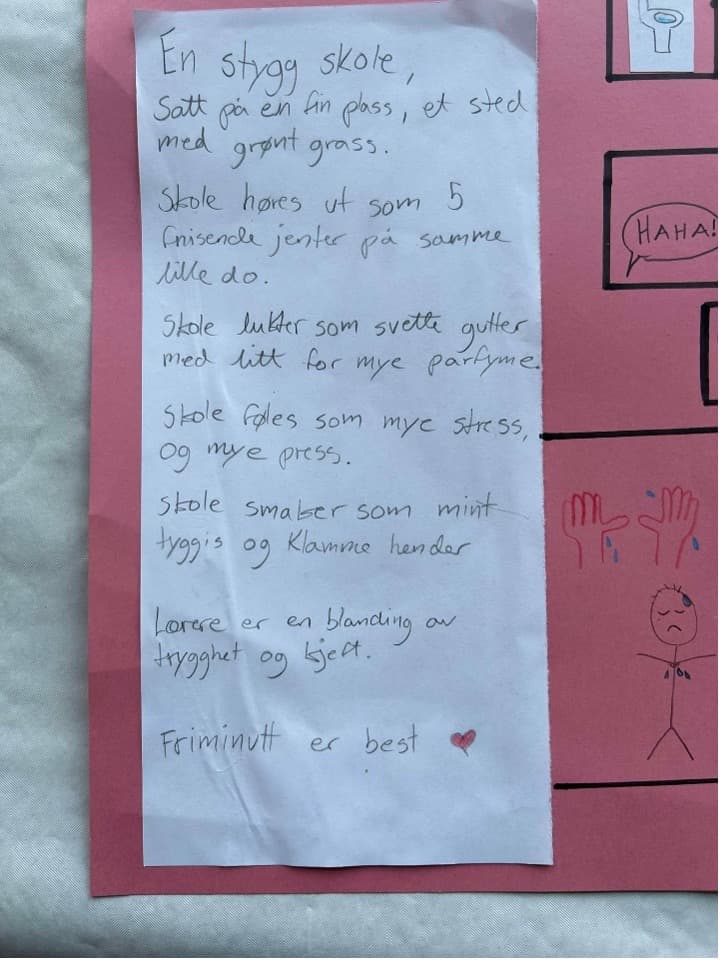 En stygg skole,
Satt på en fin plass, et sted
med grønt grass.
Skole høres ut som 5
fnisende jenter på samme
lille do.
Skole lukter som svette gutter
med litt for mye parfyme.
Skole føles som mye stress,
og mye press.
Skole smaker som mint
tyggis og Klamme hender
Lærere er en blanding av
trygghet og kjeft.
Friminutt er best
HAHA!